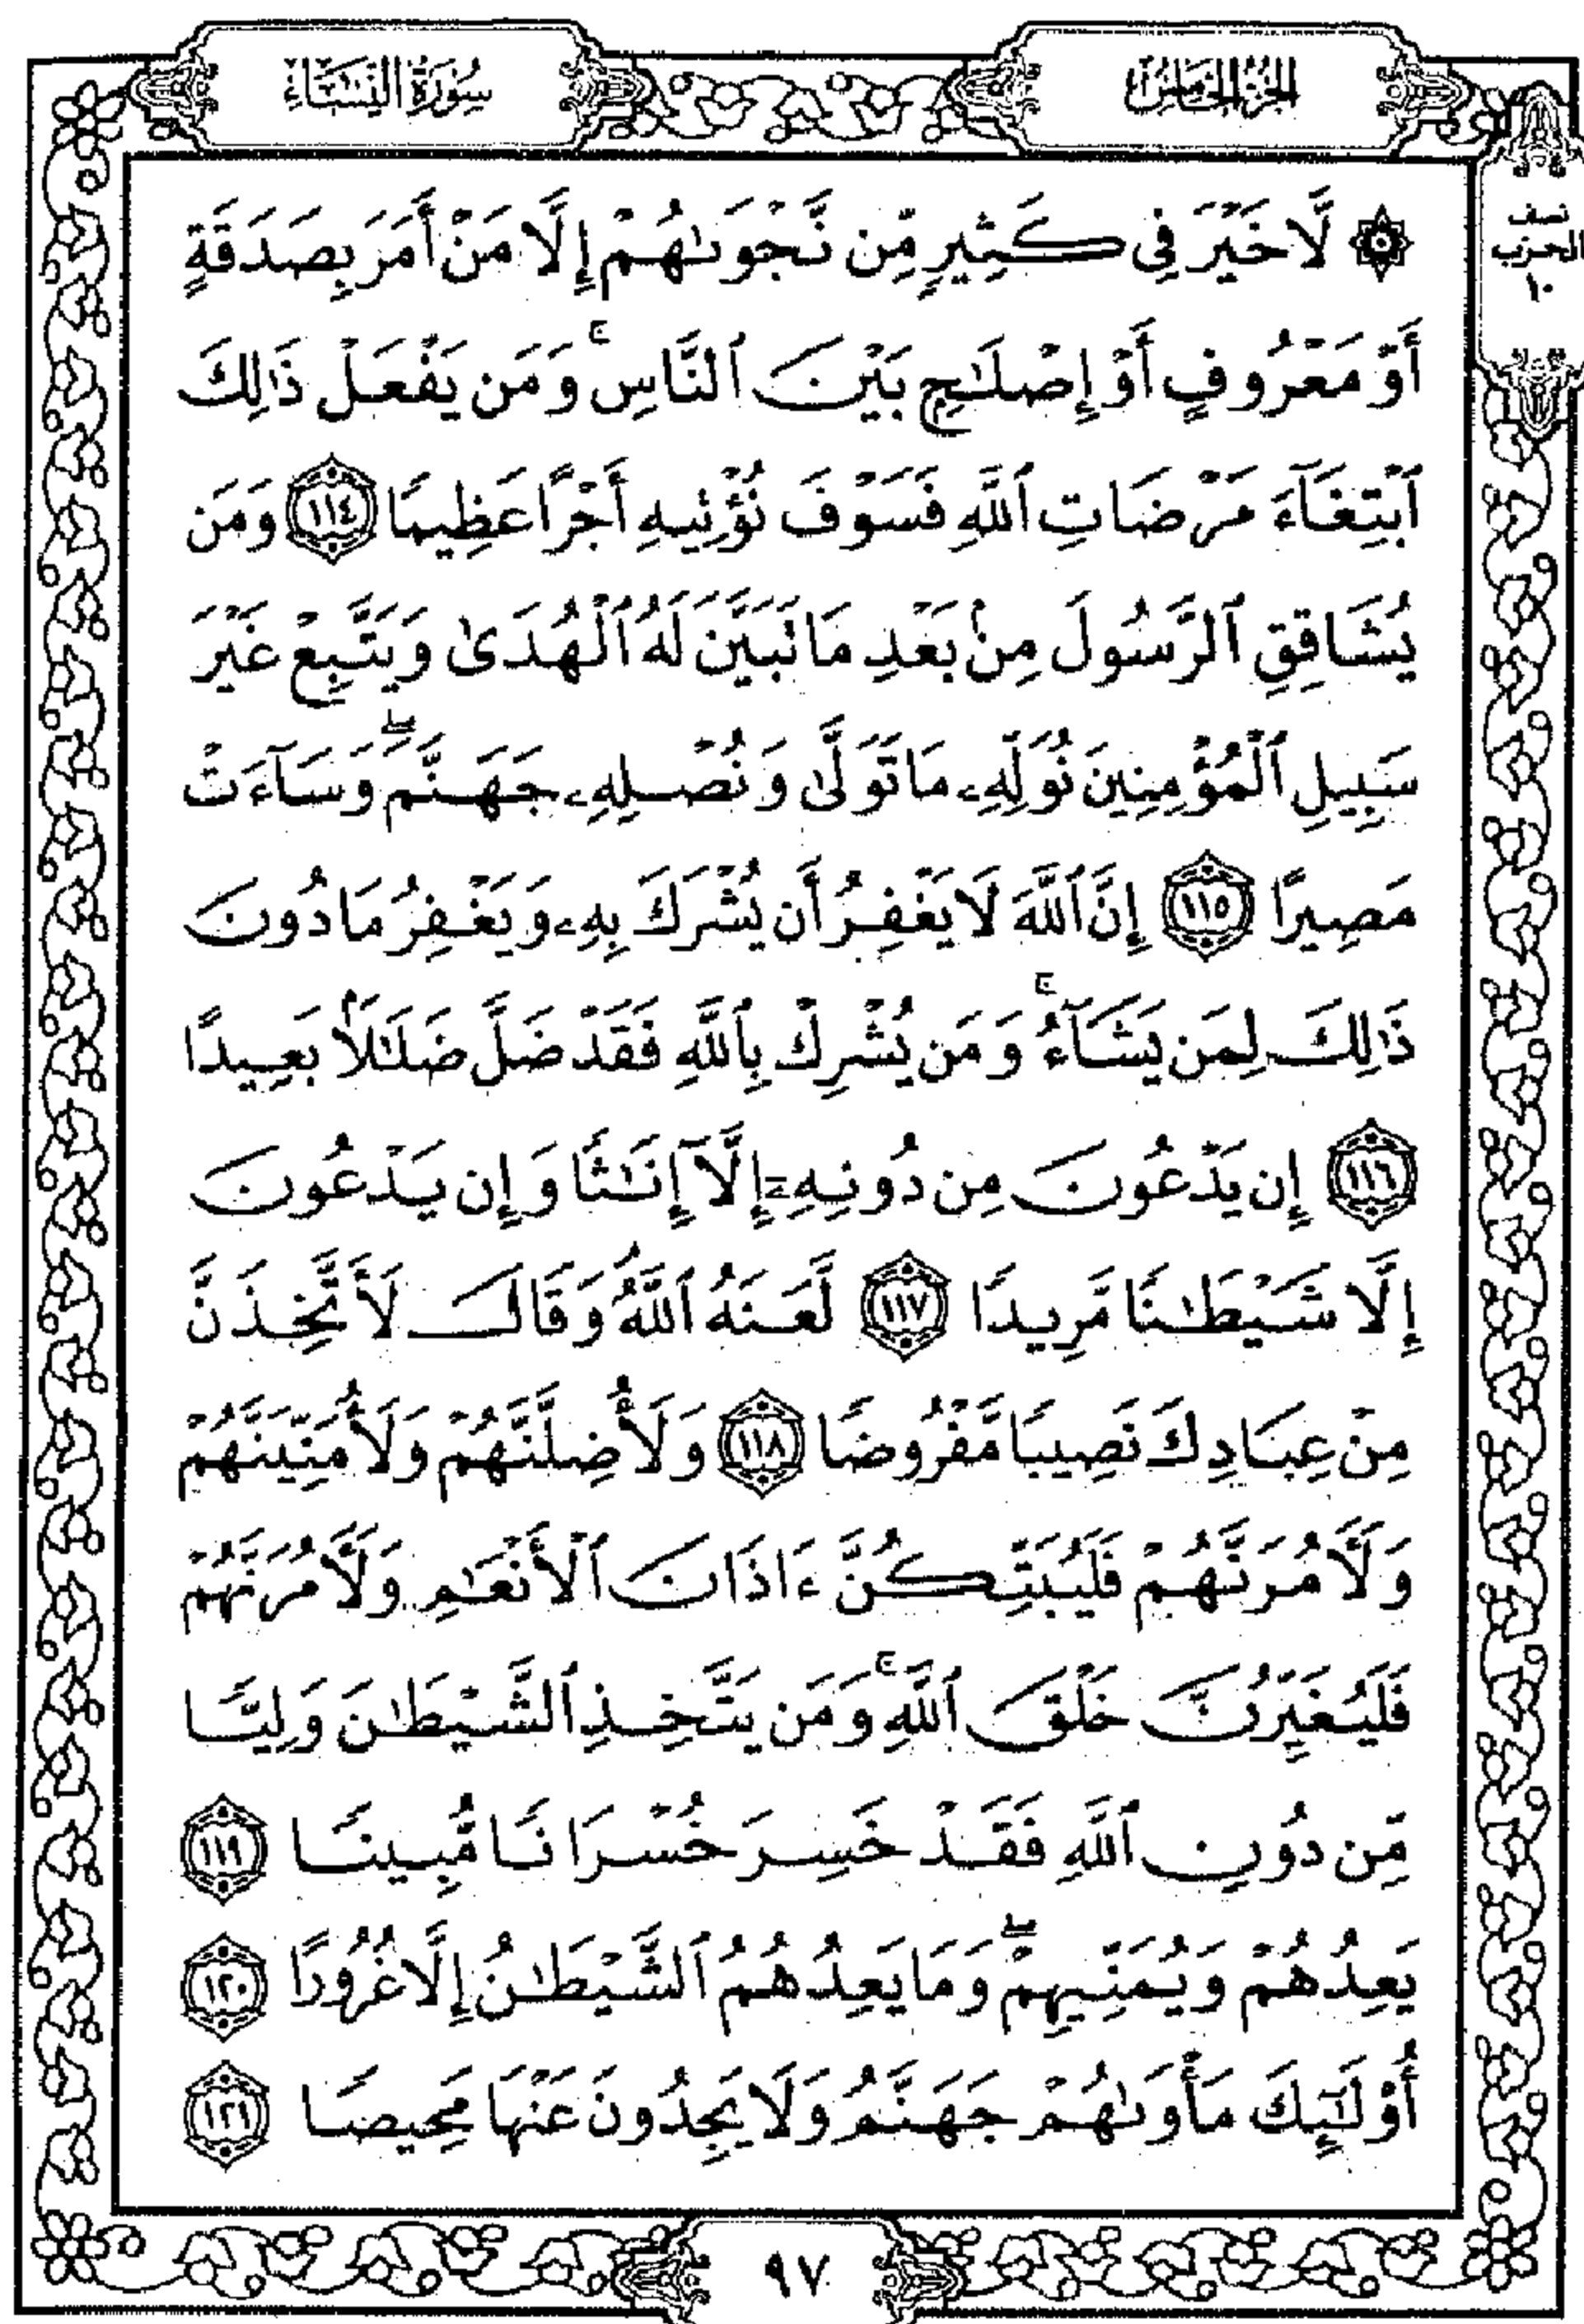 الجزء الخامس
سورة النساء
نصف
الحزب
١٠
۞ لَّا خَيْرَ فِى كَثِيرٍ مِّن نَّجْوَىٰهُمْ إِلَّا مَنْ أَمَرَ بِصَدَقَةٍ
أَوْ مَعْرُوفٍ أَوْ إِصْلَٰحٍۭ بَيْنَ ٱلنَّاسِ ۚ وَمَن يَفْعَلْ ذَٰلِكَ
ٱبْتِغَآءَ مَرْضَاتِ ٱللَّهِ فَسَوْفَ نُؤْتِيهِ أَجْرًا عَظِيمًا ١١٤ وَمَن
يُشَاقِقِ ٱلرَّسُولَ مِنۢ بَعْدِ مَا تَبَيَّنَ لَهُ ٱلْهُدَىٰ وَيَتَّبِعْ غَيْرَ
سَبِيلِ ٱلْمُؤْمِنِينَ نُوَلِّهِۦ مَا تَوَلَّىٰ وَنُصْلِهِۦ جَهَنَّمَ ۖ وَسَآءَتْ
مَصِيرًا ١١٥ إِنَّ ٱللَّهَ لَا يَغْفِرُ أَن يُشْرَكَ بِهِۦ وَيَغْفِرُ مَا دُونَ
ذَٰلِكَ لِمَن يَشَآءُ ۚ وَمَن يُشْرِكْ بِٱللَّهِ فَقَدْ ضَلَّ ضَلَٰلًۢا بَعِيدًا
١١٦ إِن يَدْعُونَ مِن دُونِهِۦٓ إِلَّآ إِنَٰثًا وَإِن يَدْعُونَ
إِلَّا شَيْطَٰنًا مَّرِيدًا ١١٧ لَّعَنَهُ ٱللَّهُ ۘ وَقَالَ لَأَتَّخِذَنَّ
مِنْ عِبَادِكَ نَصِيبًا مَّفْرُوضًا ١١٨ وَلَأُضِلَّنَّهُمْ وَلَأُمَنِّيَنَّهُمْ
وَلَءَامُرَنَّهُمْ فَلَيُبَتِّكُنَّ ءَاذَانَ ٱلْأَنْعَٰمِ وَلَءَامُرَنَّهُمْ
فَلَيُغَيِّرُنَّ خَلْقَ ٱللَّهِ ۚ وَمَن يَتَّخِذِ ٱلشَّيْطَٰنَ وَلِيًّا
مِّن دُونِ ٱللَّهِ فَقَدْ خَسِرَ خُسْرَانًا مُّبِينًا ١١٩
يَعِدُهُمْ وَيُمَنِّيهِمْ ۖ وَمَا يَعِدُهُمُ ٱلشَّيْطَٰنُ إِلَّا غُرُورًا ١٢٠
أُو۟لَٰٓئِكَ مَأْوَىٰهُمْ جَهَنَّمُ وَلَا يَجِدُونَ عَنْهَا مَحِيصًا ١٢١
٩٧